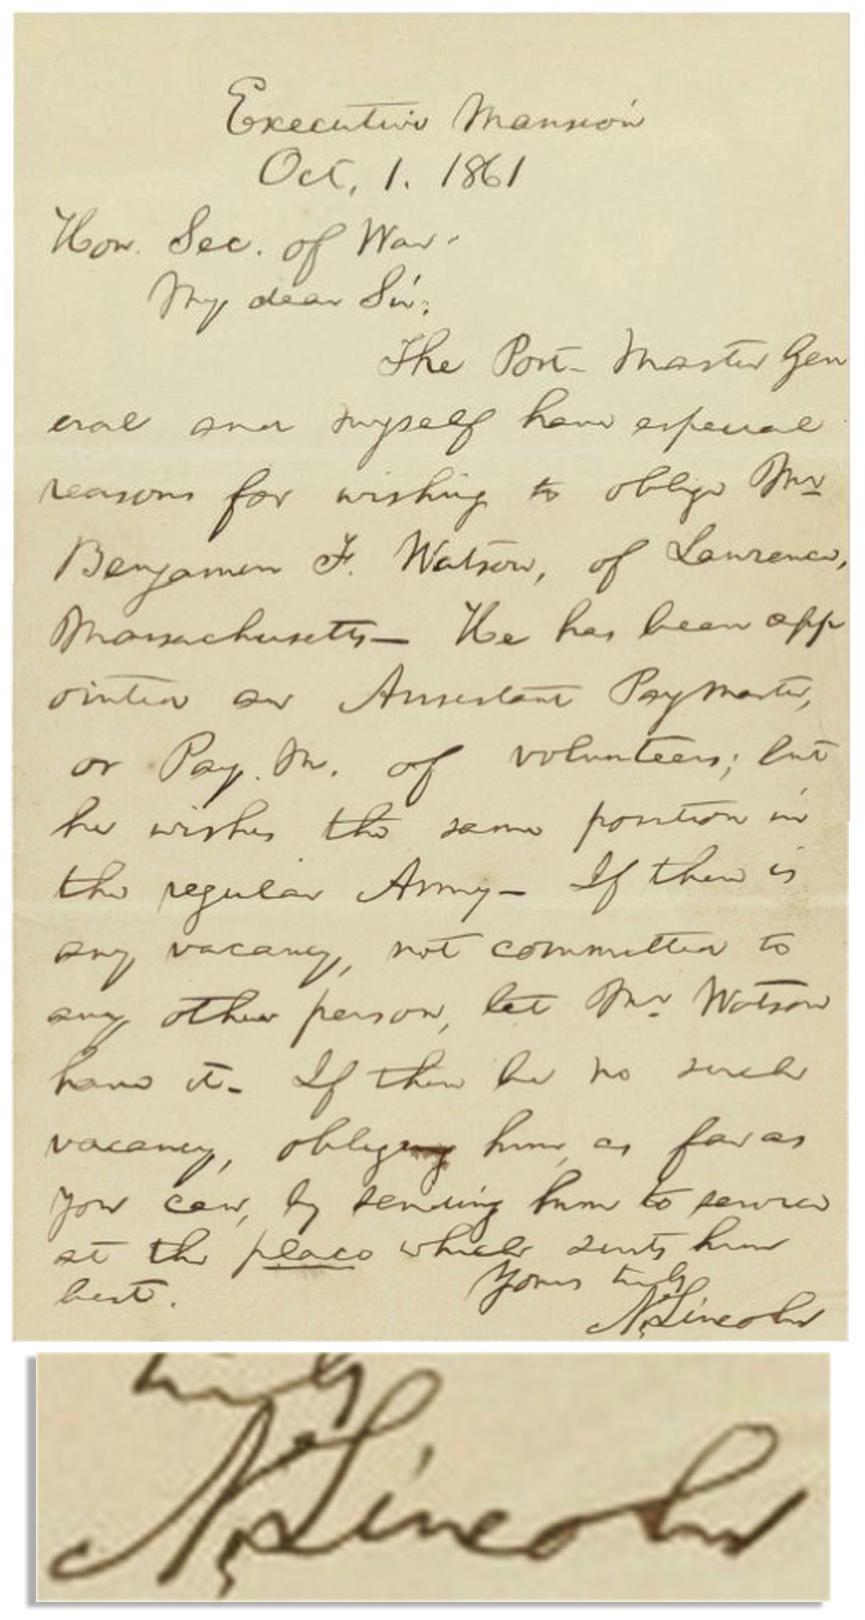 Executive Mansion
Oct. 1. 1861
Hon. Sec. of War.
My dear Sir:
The Post-Master Gen
eral and myself have especial
reasons for wishing to oblige Mr
Benjamin F. Watson, of Lawrence,
Massachusetts— He has been app
ointed an Assistant PayMaster,
or Pay. M. of volunteers; but
he wishes the same position in
the regular Army— If there is
any vacancy, not committed to
any other person, let Mr. Watson
have it— If there be no such
vacancy, oblige him, as far as
you can, by sending him to service
at the place which suits him
best.
Yours truly
A. Lincoln
A. Lincoln